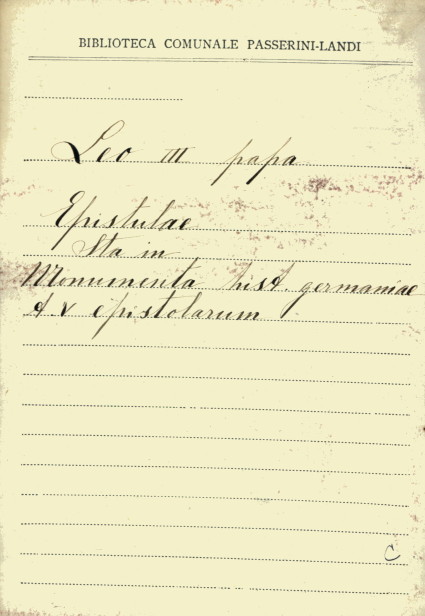 BIBLIOTECA COMUNALE PASSERINI-LANDI
Leo III papa
Epistulae
Sta in
Monumenta hist. germaniae
t. V epistolarum
C